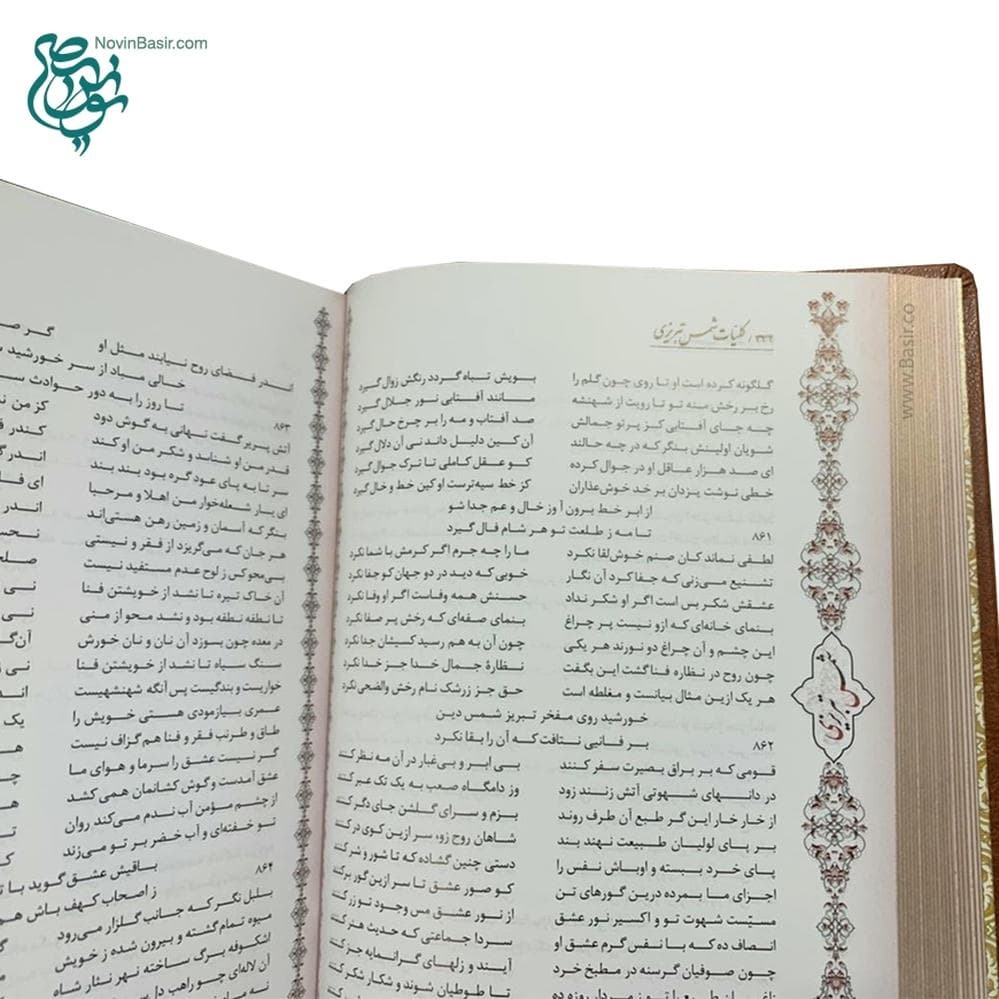 NovinBasir.com
نوین بصیر
www.Basir.co
۳۳۶ / کلیات شمس تبریزی
گلگونه کرده است او تا روی چون گلم را بویش تباه گردد رنگش زوال گیرد
رخ بر رخش منه تو تا رویت از شهنشه مانند آفتابی نور جلال گیرد
چه جای آفتابی کز پرتو جمالش صد آفتاب و مه را بر چرخ حال گیرد
شویان اولینش بنگر که در چه حالند آن کین دلیل داند نی آن دلال گیرد
ای صد هزار عاقل او در جوال کرده کو عقل کاملی تا ترک جوال گیرد
خطی نوشت یزدان بر خد خوش‌عذاران کز خط سیه‌ترست او کین خط و خال گیرد
از ابر خط برون آ وز خال و عم جدا شو
تا مه ز طلعت تو هر شام فال گیرد
۸۶۱
لطفی نماند کان صنم خوش‌لقا نکرد ما را چه جرم اگر کرمش با شما نکرد
تشنیع می‌زنی که جفا کرد آن نگار خوبی که دید در دو جهان کو جفا نکرد
عشقش شکر بس است اگر او شکر نداد حسنش همه وفاست اگر او وفا نکرد
بنمای خانه‌ای که ازو نیست پر چراغ بنمای صفه‌ای که رخش پر صفا نکرد
این چشم و آن چراغ دو نورند هر یکی چون آن به هم رسید کسیشان جدا نکرد
چون روح در نظاره فنا گشت این بگفت نظارهٔ جمال خدا جز خدا نکرد
هر یک ازین مثال بیانست و مغلطه است حق جز ز رشک نام رخش والضحی نکرد
خورشید روی مفخر تبریز شمس دین
بر فانیی نتافت که آن را بقا نکرد
۸۶۲
قومی که بر براق بصیرت سفر کنند بی ابر و بی‌غبار در آن مه نظر کنند
در دانهای شهوتی آتش زنند زود وز دامگاه صعب به یک تک عبر کنند
از خار خار این گر طبع آن طرف روند بزم و سرای گلشن جای دگر کنند
بر پای لولیان طبیعت نهند بند شاهان روح زو، سر ازین کوی در کنند
پای خرد ببسته و اوباش نفس را دستی چنین گشاده که تا شور و شر کنند
اجزای ما بمرده درین گورهای تن کو صور عشق تا سر ازین گور بر کنند
مسیّست شهوت تو و اکسیر نور عشق از نور عشق مس وجود تو زر کنند
انصاف ده که با نفس گرم عشق او سردا جماعتی که حدیث هنر کنند
چون صوفیان گرسنه در مطبخ خرد آیند و زلهای گرانمایه جز کنند
تا طوطیان شوند و شکار شکر کنند
شمس تبریزی
اندر فضای روح نیابند مثل او
خالی مباد از سر خورشید
تا روز را به دور حوادث
۸۶۳
آتش پریر گفت نهانی به گوش دود
قدر من او شناند و شکر من او کند
سر تا به پای عود گره بود بند بند
ای یار شعله‌خوار من اهلا و مرحبا
بنگر که آسمان و زمین رهن هستی‌اند
هر جان که می‌گریزد از فقر و نیستی
بی‌محو کس ز لوح عدم مستفید نیست
آن خاک تیره تا نشد از خویشتن فنا
تا نطفه نطفه بود و نشد محو از منی
در معده چون بسوزد آن نان و نان خورش
سنگ سیاه تا نشد از خویشتن فنا
خواریست و بندگیست پس آنگه شهنشهیست
عمری بیازمودی هستی خویش را
طاق و طرنب فقر و فنا هم گزاف نیست
گر نیست عشق را سر ما و هوای ما
عشق آمدست و گوش کشانمان همی کشد
از چشم مؤمن آب ندم می‌کند روان
تو خفته‌ای و آب خضر بر تو می‌زند
باقیش عشق گوید با
ز اصحاب کهف باش
۸۶۴
بلبل نگر که جانب گلزار می‌رود
میوه تمام گشته و بیرون شده ز خویش
اشکوفه برگ ساخته نهر نثار شاه
آن لاله‌ای چو راهب